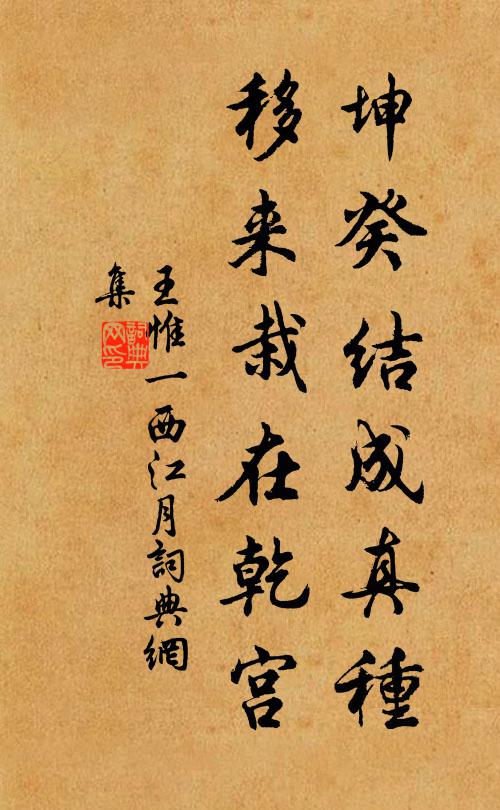 坤癸结成真種
移来栽在乾宫
王惟一西江月詞典網
集
詞典
网印